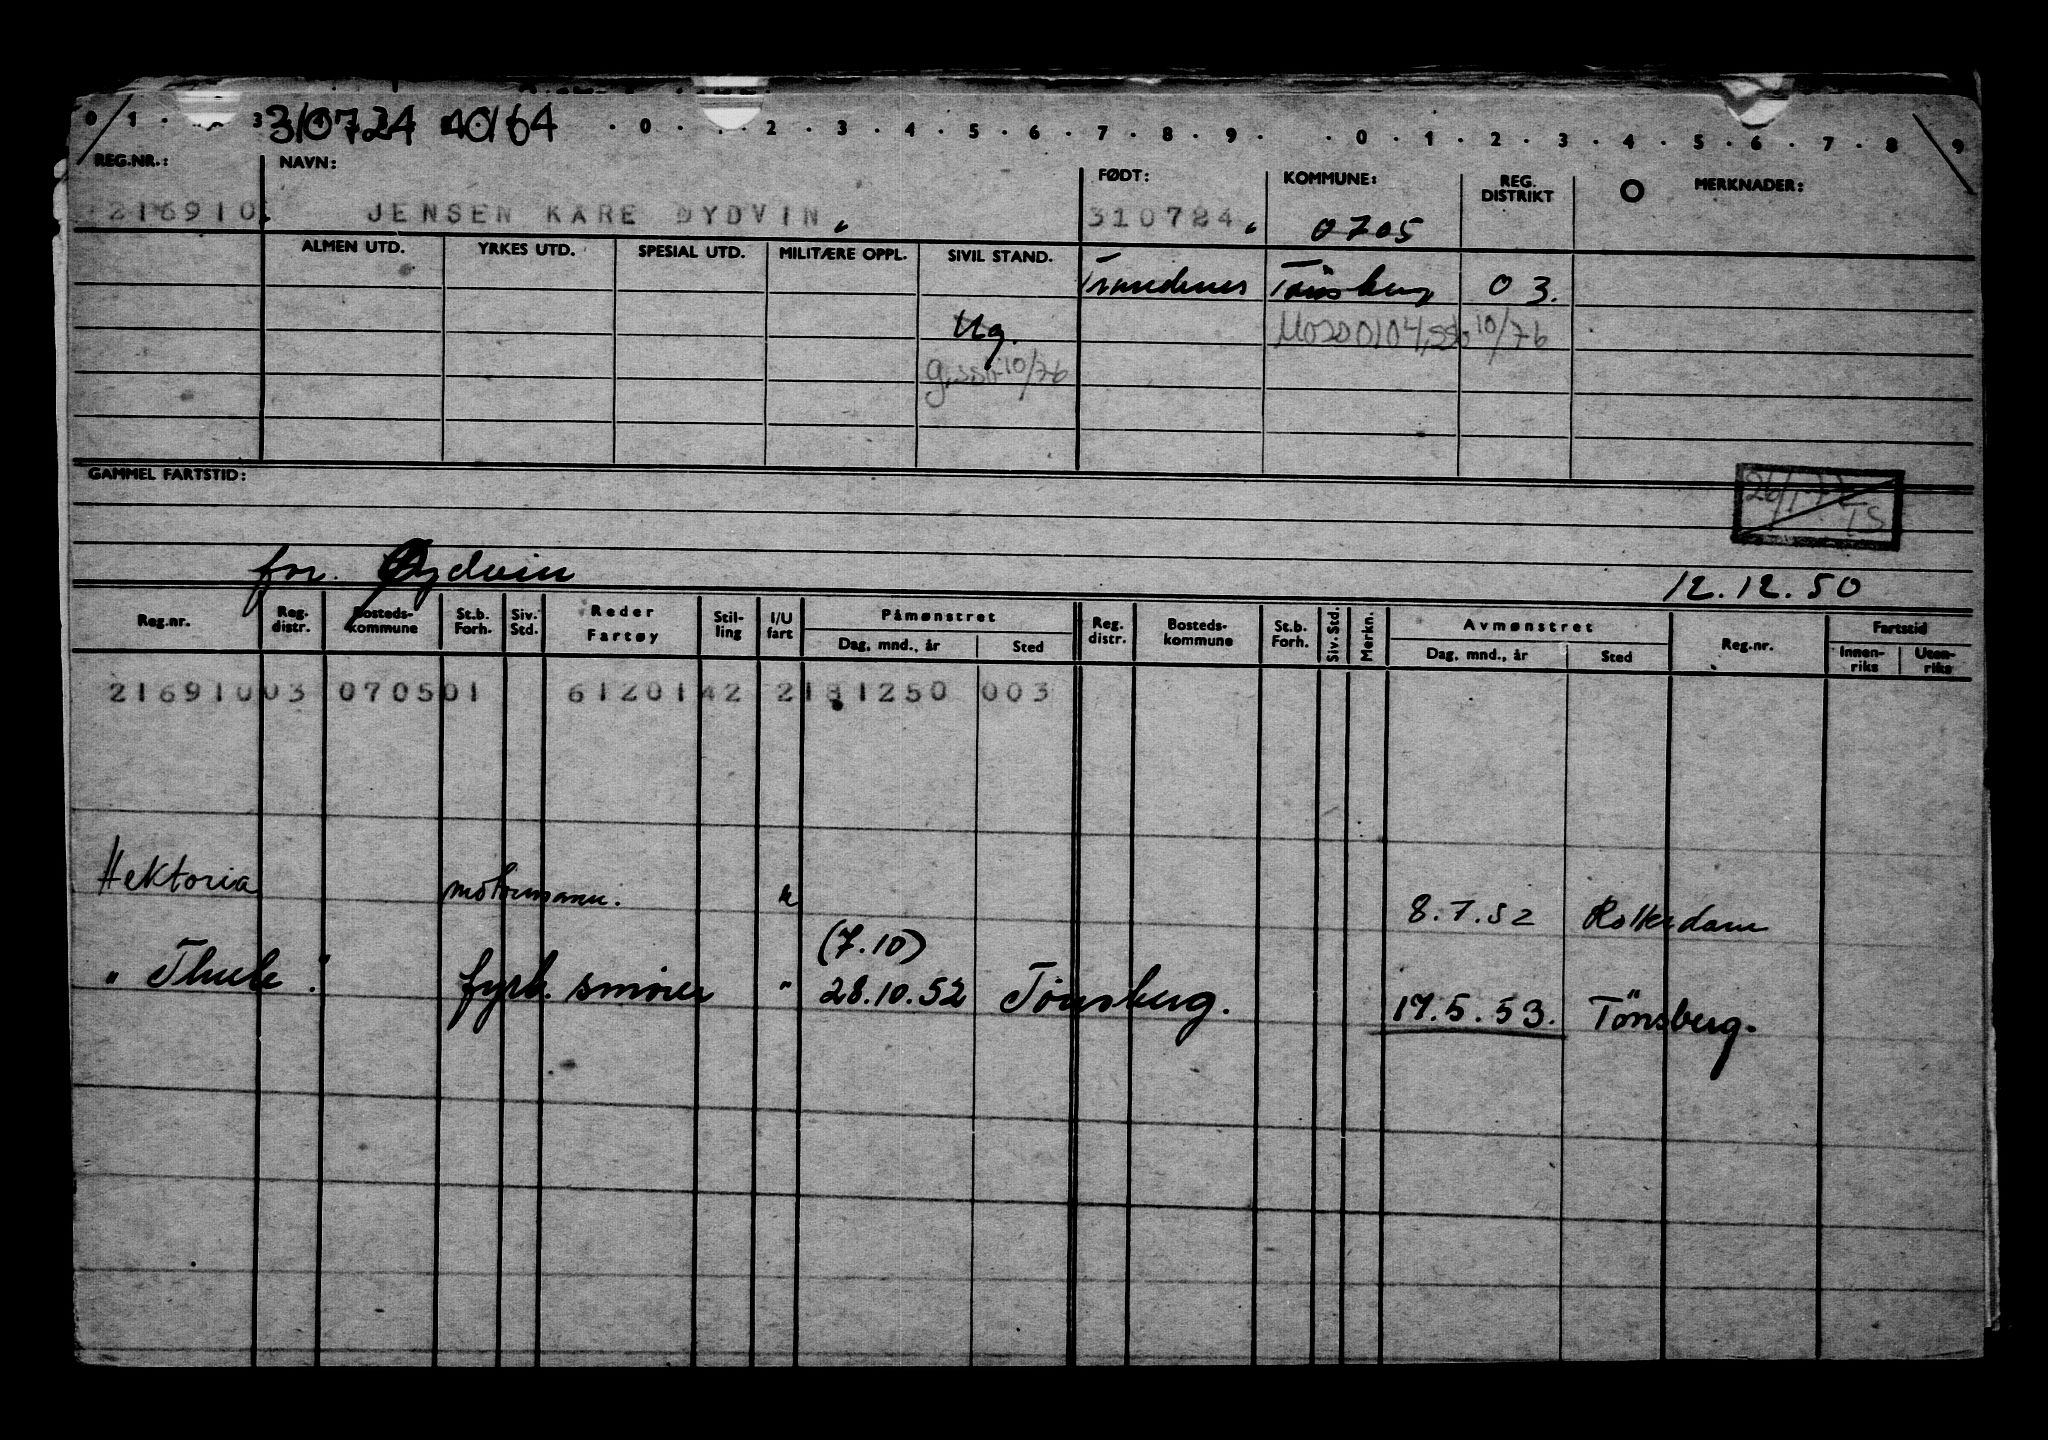 0 1 . 3 310724 40164 . 0 . . 2 . 3 . 4 . 5 . 6 . 7 . 8 . 9 . . 0 . 1 . 2 . 3 . 4 . 5 . 6 . 7 . 8 9
REG.NR.: NAVN: FØDT: KOMMUNE: REG. DISTRIKT O MERKNADER:
216910. JENSEN KARE ØYDVIN, 310724, 0705
ALMEN UTD. YRKES UTD. SPESIAL UTD. MILITÆRE OPPL. SIVIL STAND. Trandenes Tönsberg 03.
Ug. Moss 0104, 10/76
g, 10/76
GAMMEL FARTSTID:
TS
for. Øydvin 12.12.50
Reg.nr. Reg. distr. Bosteds-kommune St.b. Forh. Siv. Std. Reder Fartøy Stil-ling I/U fart Påmønstret Reg. distr. Bosteds-kommune St.b. Forh. Siv. Std. Merkn. Avmønstret Reg.nr. Fartstid
Dag, mnd., år Sted Dag, mnd., år Sted Innen-riks Uten-riks
21691003 070501 6120142 2181250 003
Hektoria motormann. u 8.7.52 Rotterdam
(7.10)
" Thule". fyrb. smører " 28.10.52 Tønsberg. 17.5.53. Tönsberg.